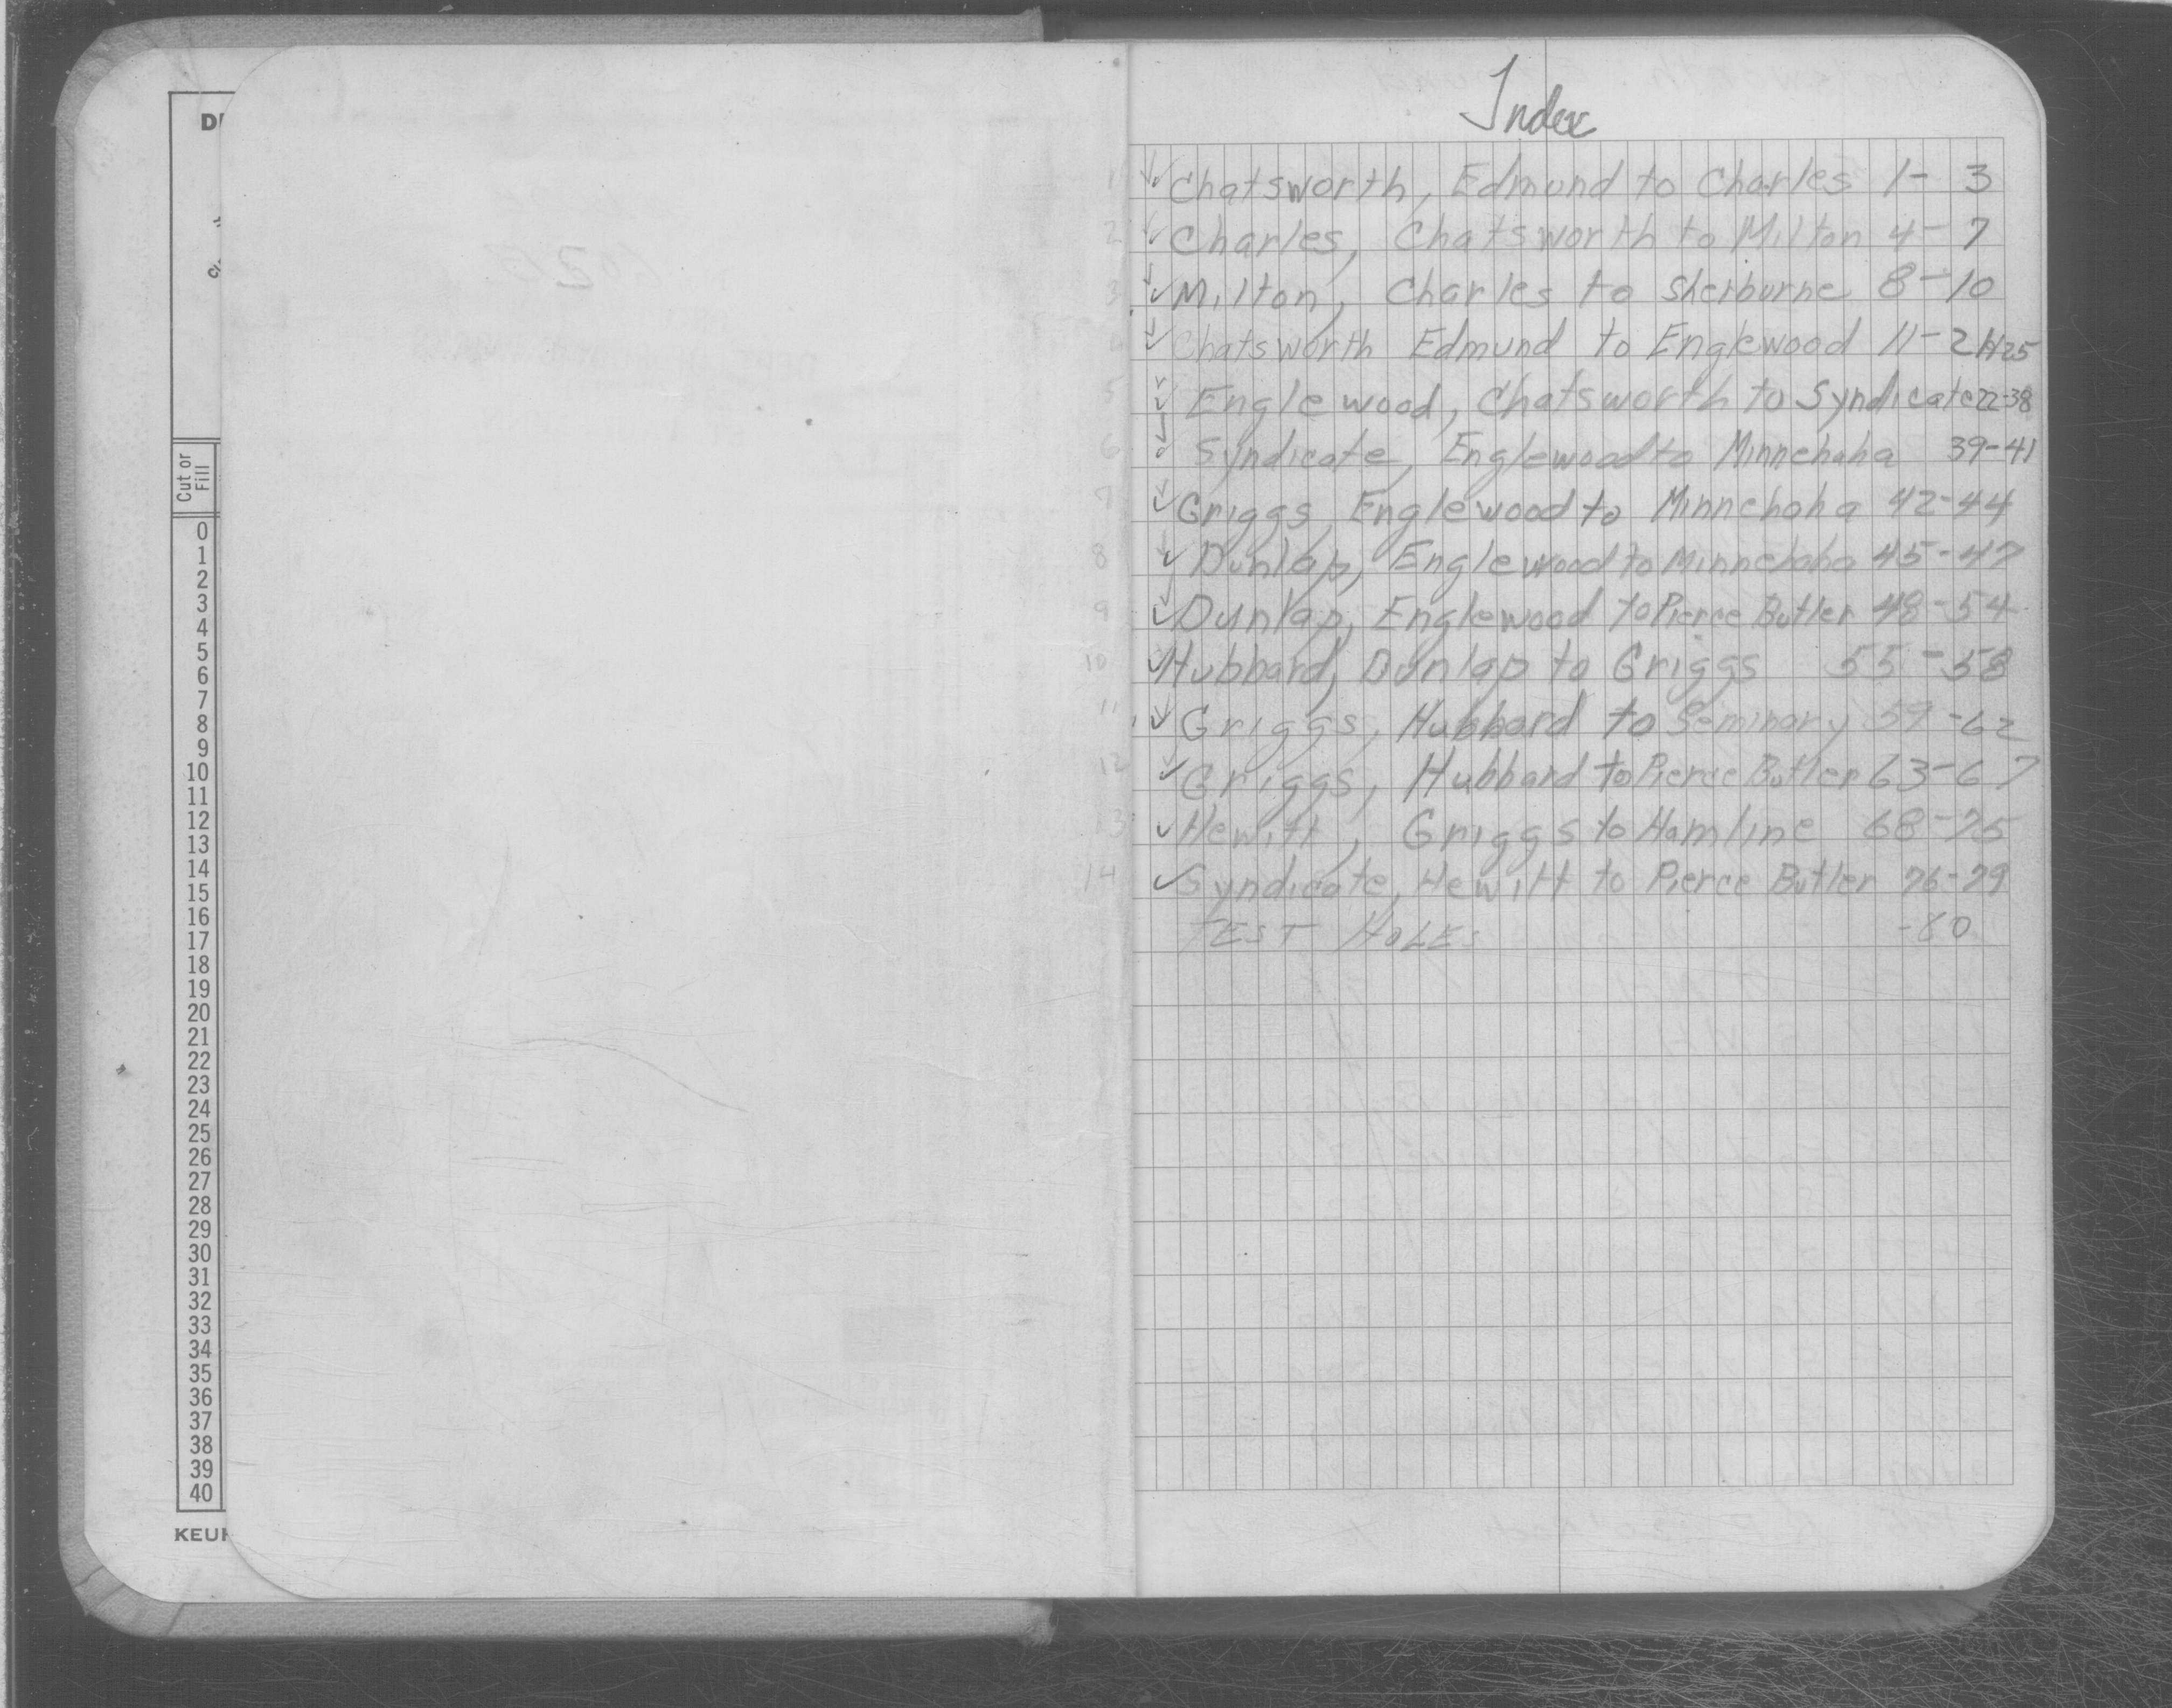 DI
Cut or
Fill
0
1
2
3
4
5
6
7
8
9
10
11
12
13
14
15
16
17
18
19
20
21
22
23
24
25
26
27
28
29
30
31
32
33
34
35
36
37
38
39
40
KEUF
Index
1 Chatsworth, Edmund to Charles 1- 3
2 Charles, Chatsworth to Milton 4- 7
3 Milton, Charles to Sherburne 8-10
4 Chatsworth Edmund to Englewood 11-21+25
5 Englewood, Chatsworth to Syndicate 22-38
6 Syndicate, Englewood to Minnehaha 39-41
7 Griggs, Englewood to Minnehaha 42-44
8 Dunlap, Englewood to Minnehaha 45-47
9 Dunlap, Englewood to Pierce Butler 48-54
10 Hubbard, Dunlap to Griggs 55-58
11 Griggs, Hubbard to Seminary 59-62
12 Griggs, Hubbard to Pierce Butler 63-67
13 Hewitt, Griggs to Hamline 68-75
14 Syndicate, Hewitt to Pierce Butler 76-79
TEST HOLES -80